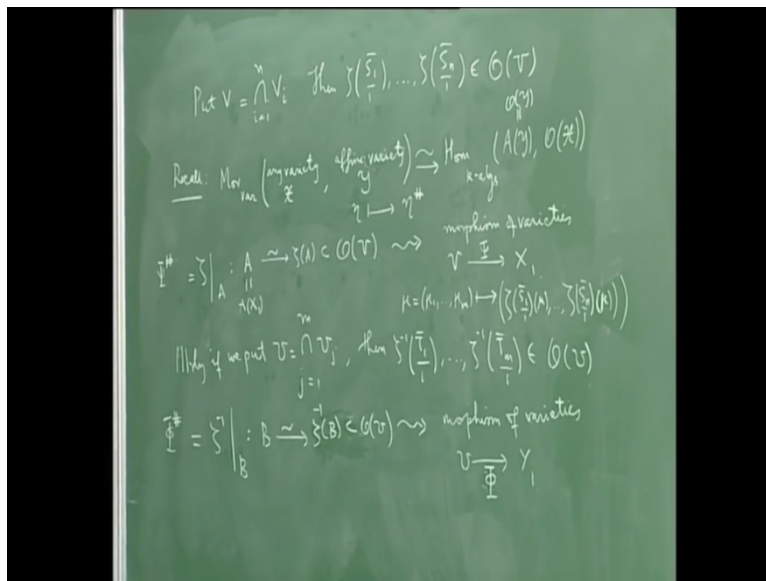 Put V = ⋂_{i=1}^{n} V_i then ζ(S̄_1/1), ..., ζ(S̄_n/1) ∈ O(V)
Recall: Mor_var (any variety 𝒳, affine variety 𝒴) ⥲ Hom_{k-algs} (A(𝒴), O(𝒳))
O(𝒴) ∥
η ↦ η^#
Φ^# = ζ|_A : A ⥲ ζ(A) ⊂ O(V) ⇝ morphism of varieties
∥ A(X_1)
V —Φ→ X_1
μ = (μ_1, ..., μ_m) ↦ (ζ(S̄_1/1)(μ), ..., ζ(S̄_n/1)(μ))
Illrly if we put U = ⋂_{j=1}^{m} U_j, then ζ^{-1}(T̄_1/1), ..., ζ^{-1}(T̄_m/1) ∈ O(U)
Φ̄^# = ζ^{-1}|_B : B ⥲ ζ^{-1}(B) ⊂ O(U) ⇝ mophism of varieties
U —Φ̄→ Y_1